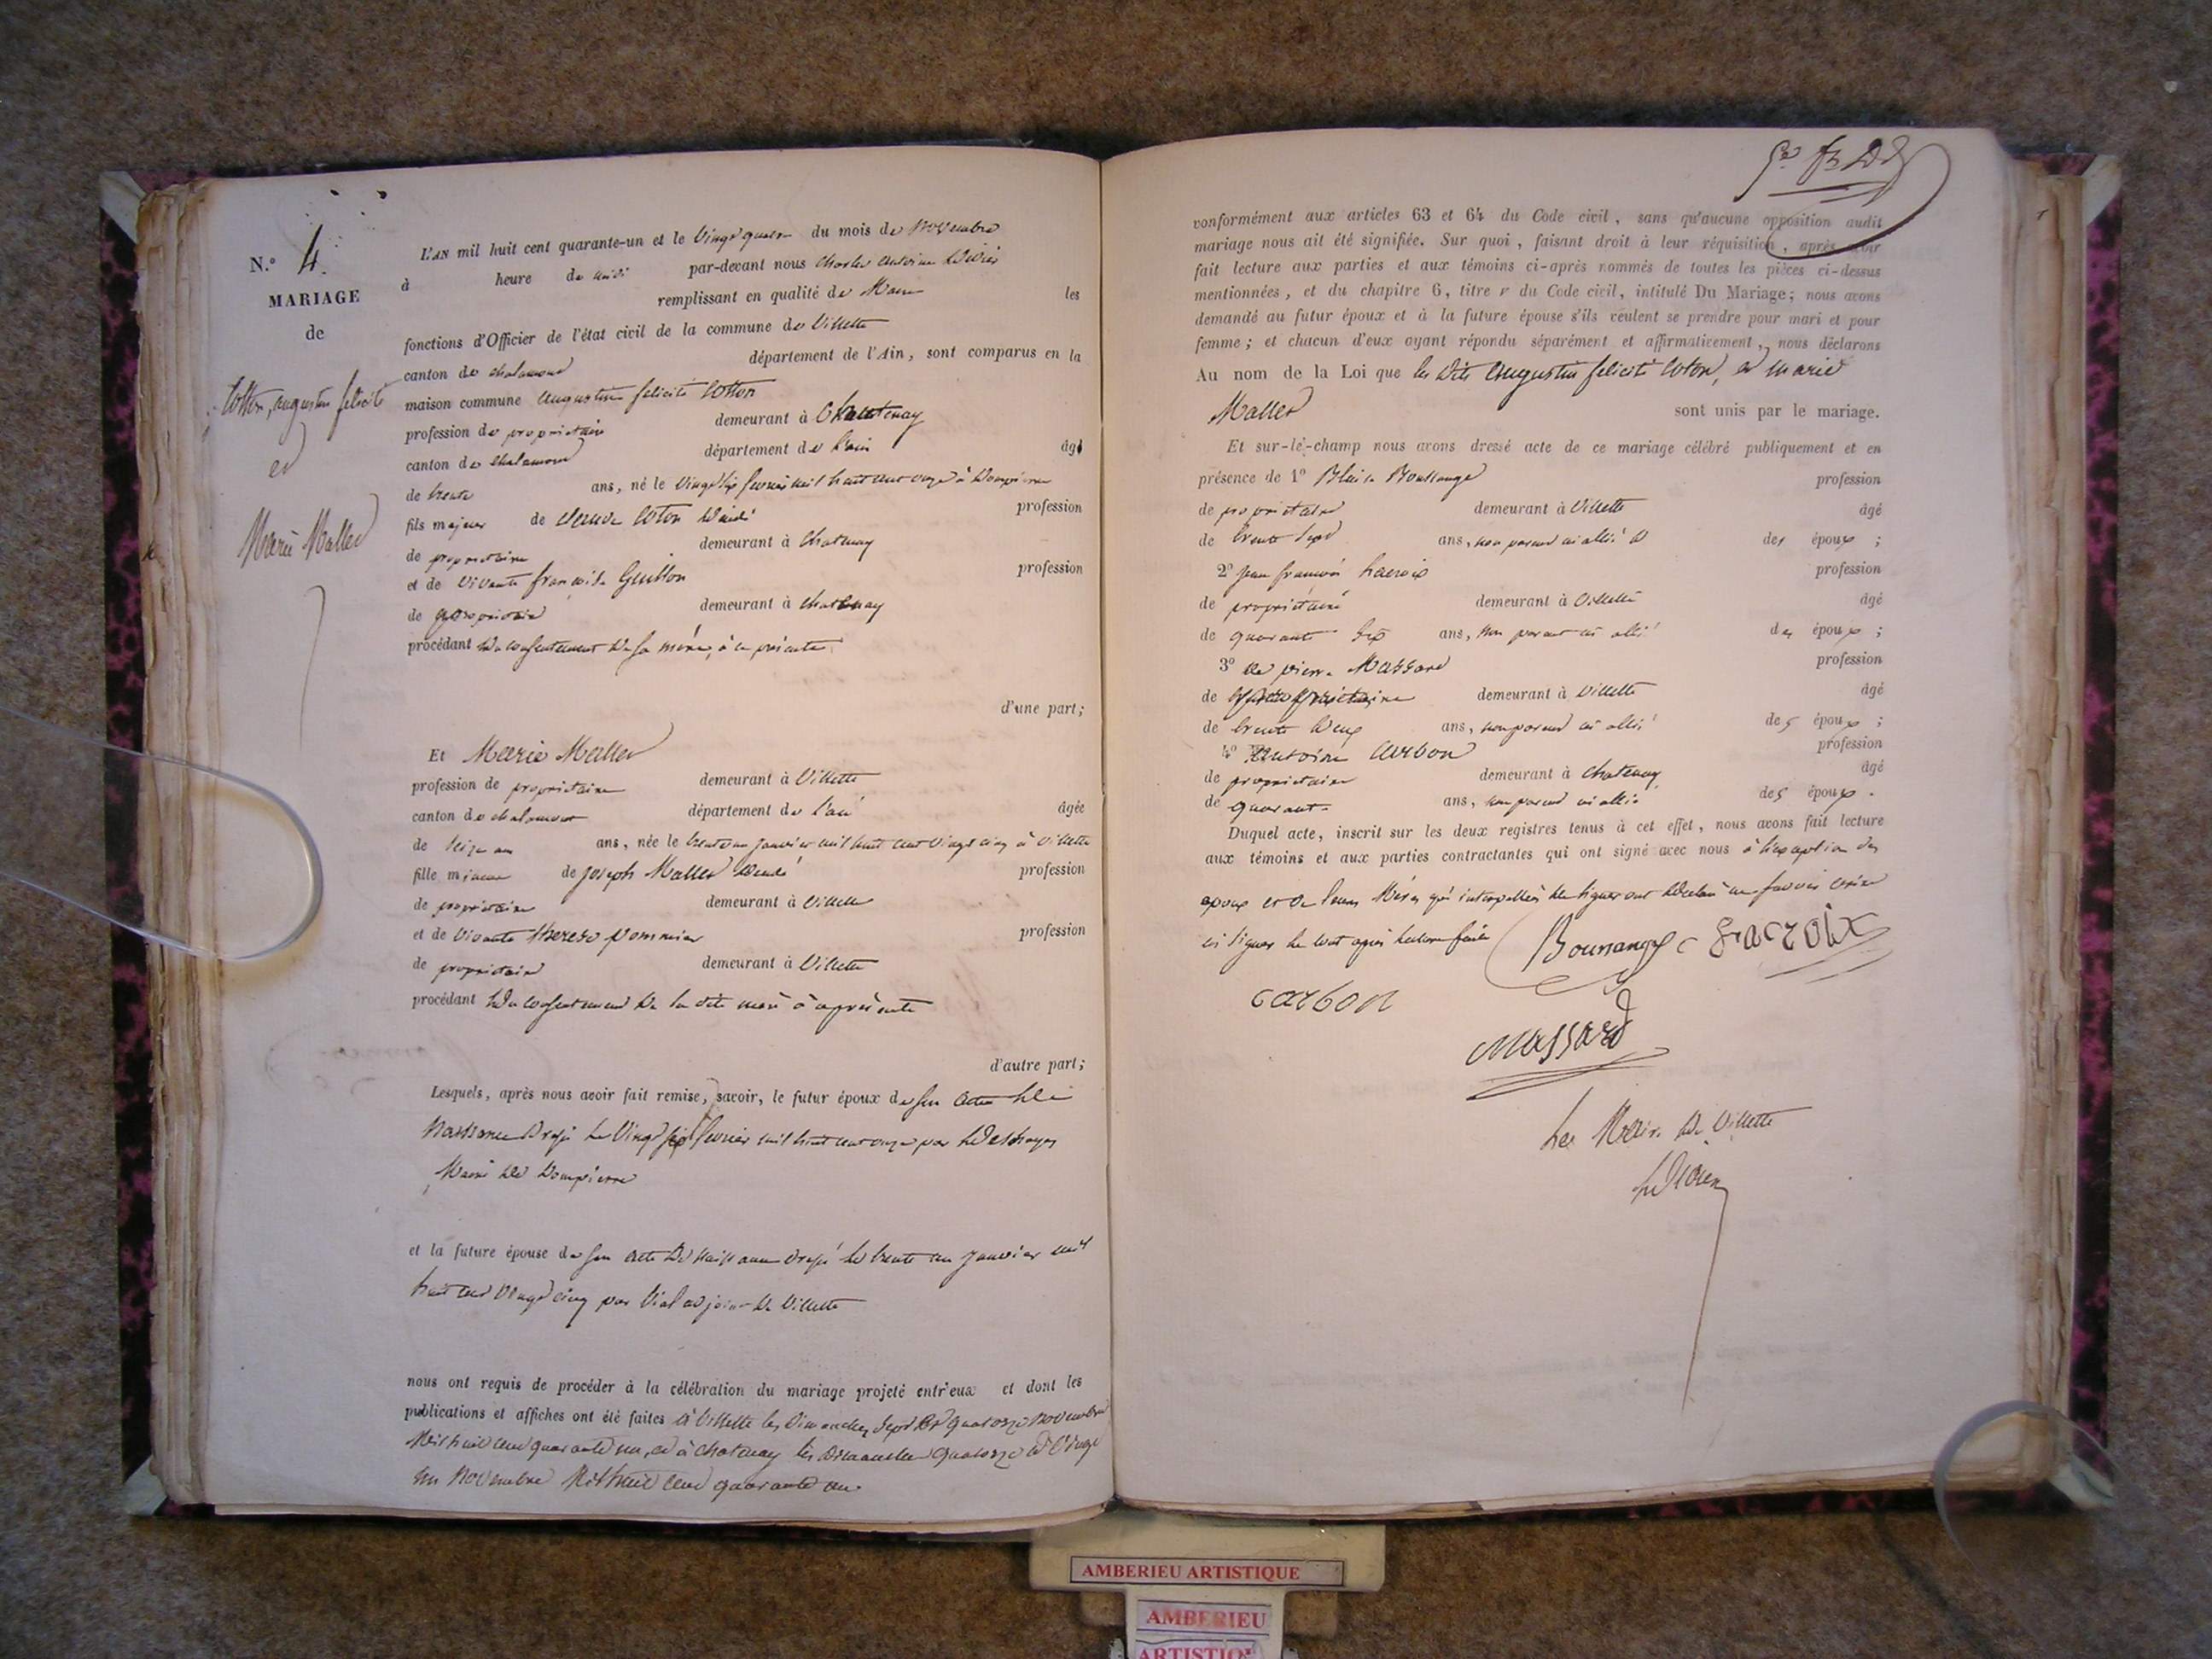 N.o 4.
MARIAGE
de
Cotton, augustin felicité
et
Marie Mallet
L'AN mil huit cent quarante-un et le vingt quatre du mois de Novembre
à heure de midi par-devant nous charles antoine
remplissant en qualité de Maire les
fonctions d'Officier de l'état civil de la commune de Villette
canton de chalamont département de l'Ain, sont comparus en la
maison commune augustin felicité Cotton
profession de propriétaire demeurant à Chatenay
canton de chalamont département de l'ain âgé
de trente ans, né le vingt six fevrier mil huit cent onze à Dompierre
fils majeur de Coton profession
de propriétaire demeurant à Chatenay
et de vivante françoise Guillon profession
de propriétaire demeurant à chatenay
procédant du consentement de sa mère, à ce présente
d'une part;
Et Marie Mallet
profession de propriétaire demeurant à Villette
canton de chalamont département de l'ain âgée
de seize ans ans, née le trente un janvier mil huit cent vingt cinq à Villette
fille mineure de joseph Mallet profession
de propriétaire demeurant à Villette
et de vivante therese pommier profession
de propriétaire demeurant à Villette
procédant du consentement de la dite mère à ce présente
d'autre part;
Lesquels, après nous avoir fait remise, savoir, le futur époux de son acte de
Naissance dressé le vingt six fevrier mil huit cent onze par
Maire de Dompierre
et la future épouse de son acte de naissance dressé le trente un janvier mil
huit cent vingt cinq par Vial adjoint de Villette
nous ont requis de procéder à la célébration du mariage projeté entr'eux et dont les
publications et affiches ont été faites à Villette les Dimanches sept et quatorze novembre
mil huit cent quarante un, et à chatenay les dimanches quatorze et vingt
un Novembre Mil huit cent quarante un.
conformément aux articles 63 et 64 du Code civil, sans qu'aucune opposition audit
mariage nous ait été signifiée. Sur quoi, faisant droit à leur réquisition, après avoir
fait lecture aux parties et aux témoins ci-après nommés de toutes les pièces ci-dessus
mentionnées, et du chapitre 6, titre v du Code civil, intitulé Du Mariage; nous avons
demandé au futur époux et à la future épouse s'ils veulent se prendre pour mari et pour
femme; et chacun d'eux ayant répondu séparément et affirmativement, nous déclarons
Au nom de la Loi que les dits augustin felicité Coton, et marie
Mallet sont unis par le mariage.
Et sur-le-champ nous avons dressé acte de ce mariage célébré publiquement et en
présence de 1o Blaise Boussange profession
de propriétaire demeurant à Villette âgé
de trente sept ans, non parent ni allié des époux;
2o jean françois Lacroix profession
de propriétaire demeurant à Villette âgé
de quarante six ans, non parent ni allié des époux;
3o de pierre Massard profession
de propriétaire demeurant à Villette âgé
de trente deux ans, non parent ni allié des époux;
4o Antoine Carbon profession
de propriétaire demeurant à Chatenay âgé
de quarante ans, non parent ni allié des époux.
Duquel acte, inscrit sur les deux registres tenus à cet effet, nous avons fait lecture
aux témoins et aux parties contractantes qui ont signé avec nous à l'exception des
époux et de leurs Mères qui interpellés de signer ont déclaré ne savoir écrire
ni signer le tout après lecture faite Boussange Lacroix
carbon
Massard
Le Maire de Villette
AMBERIEU ARTISTIQUE
AMBERIEU
ARTISTIQUE